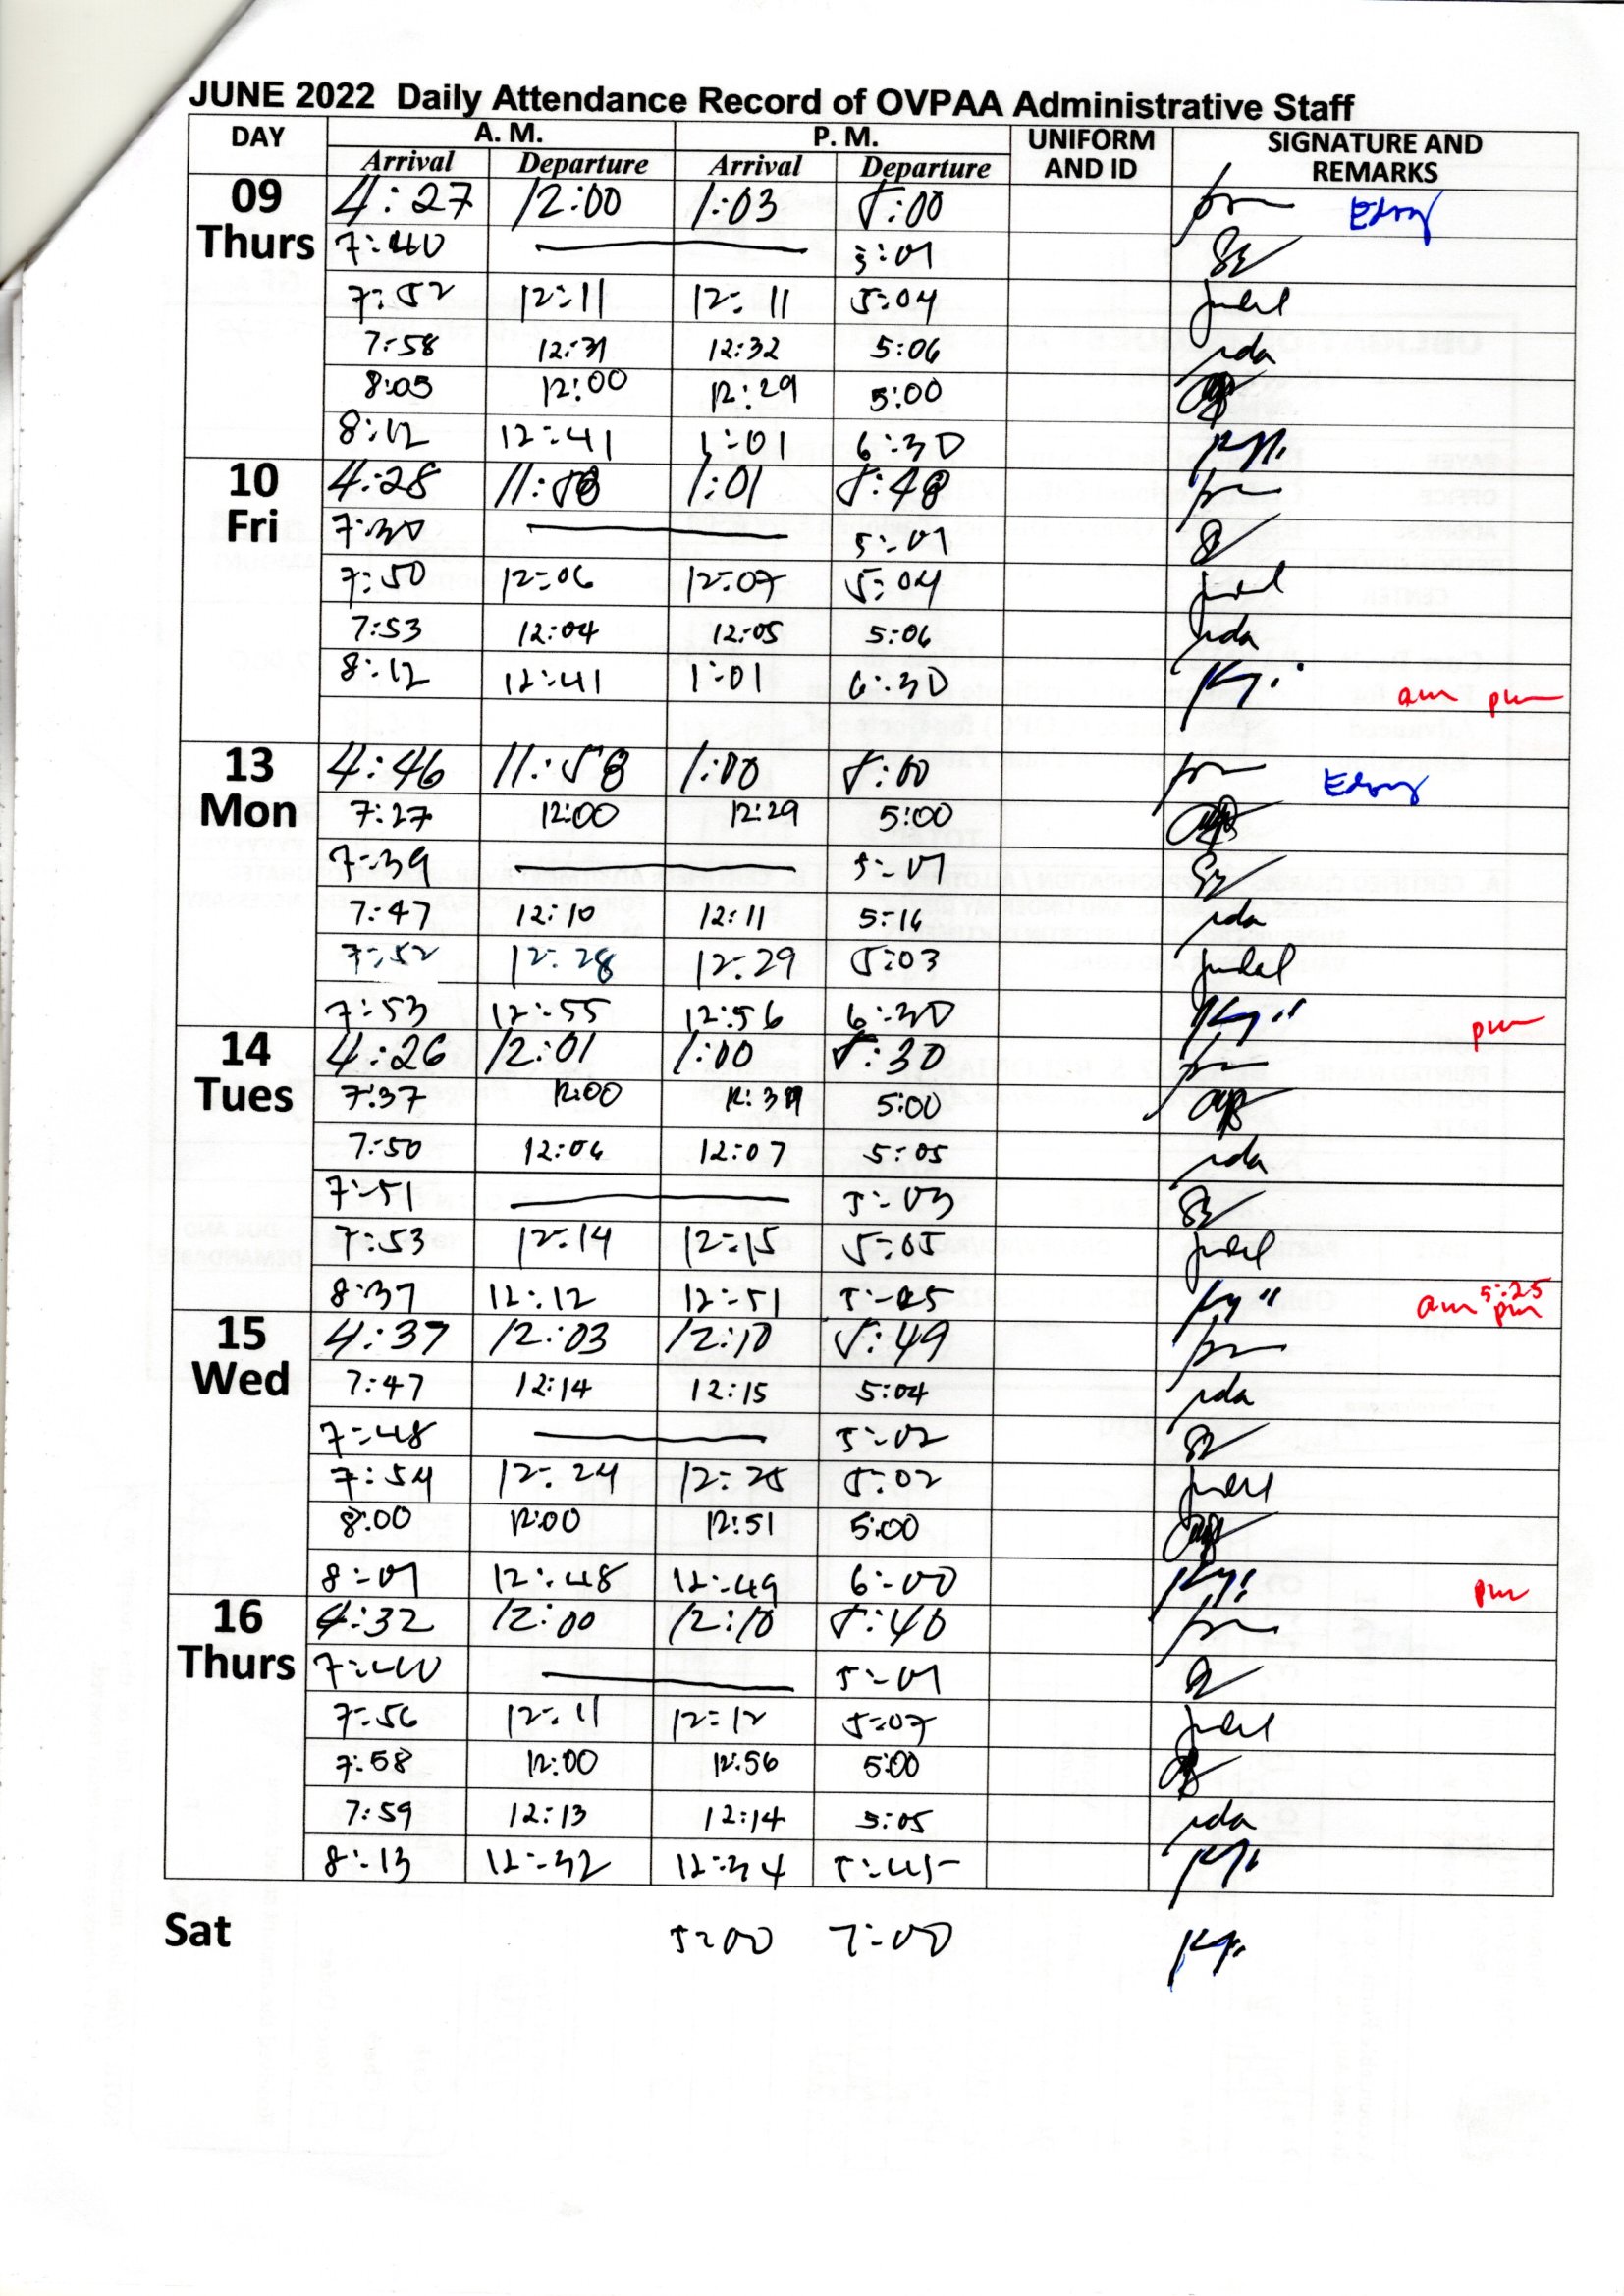 JUNE 2022 Daily Attendance Record of OVPAA Administrative Staff
DAY A. M. P. M. UNIFORM AND ID SIGNATURE AND REMARKS
Arrival Departure Arrival Departure
09 Thurs
4:27 12:00 1:03 5:00 Edsoy
7:40 5:01
7:52 12:11 12:11 5:04 judel
7:58 12:31 12:32 5:06 nda
8:05 12:00 12:29 5:00
8:12 12:41 1:01 6:30
10 Fri
4:28 11:58 1:01 5:48
7:30 5:01
7:50 12:06 12:07 5:04 judel
7:53 12:04 12:05 5:06 nda
8:12 12:41 1:01 6:30 am pm
13 Mon
4:46 11:58 1:00 5:00 Edsoy
7:27 12:00 12:29 5:00
7:39 5:01
7:47 12:10 12:11 5:16 nda
7:52 12:28 12:29 5:03 judel
7:53 12:55 12:56 6:30 pm
14 Tues
4:26 12:01 1:00 5:30
7:37 12:00 5:00
7:50 12:06 12:07 5:05 nda
7:51 5:03
7:53 12:14 12:15 5:05 judel
8:37 12:12 12:51 am 5:25 pm
15 Wed
4:37 12:03 12:10 5:49
7:47 12:14 12:15 5:04 nda
7:48 5:02
7:54 12:24 12:25 5:02 judel
8:00 12:00 12:51 5:00
8:01 12:48 12:49 6:00 pm
16 Thurs
4:32 12:00 12:10 5:40
7:40 5:01
7:56 12:11 12:12 5:07 judel
7:58 12:00 12:56 5:00
7:59 12:13 12:14 5:05 nda
8:13 12:32 12:34 5:45
Sat 5:00 7:00